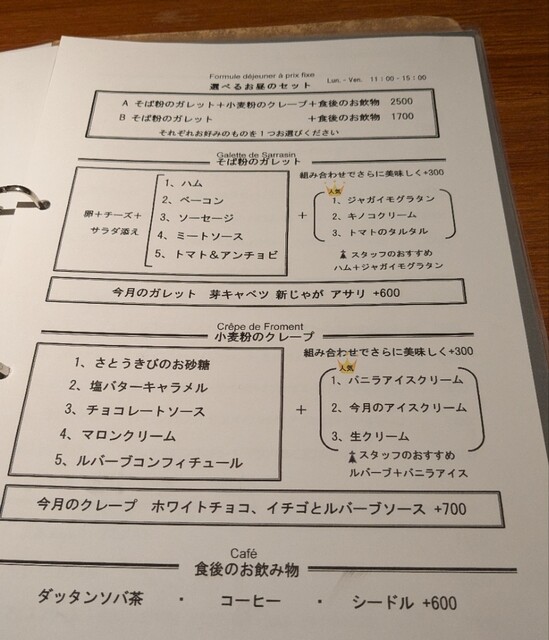 Formule déjeuner à prix fixe
Lun.- Ven. 11:00-15:00
選べるお昼のセット
A そば粉のガレット+小麦粉のクレープ+食後のお飲物 2500
B そば粉のガレット +食後のお飲物 1700
それぞれお好みのものを1つお選びください
Galette de Sarrasin
そば粉のガレット
卵+チーズ+
サラダ添え
1、ハム
2、ベーコン
3、ソーセージ
4、ミートソース
5、トマト&アンチョビ
+
組み合わせでさらに美味しく+300
人気
1、ジャガイモグラタン
2、キノコクリーム
3、トマトのタルタル
スタッフのおすすめ
ハム+ジャガイモグラタン
今月のガレット 芽キャベツ 新じゃが アサリ +600
Crêpe de Froment
小麦粉のクレープ
1、さとうきびのお砂糖
2、塩バターキャラメル
3、チョコレートソース
4、マロンクリーム
5、ルバーブコンフィチュール
+
組み合わせでさらに美味しく+300
人気
1、バニラアイスクリーム
2、今月のアイスクリーム
3、生クリーム
スタッフのおすすめ
ルバーブ+バニラアイス
今月のクレープ ホワイトチョコ、イチゴとルバーブソース +700
Café
食後のお飲み物
ダッタンソバ茶 ・ コーヒー ・ シードル +600